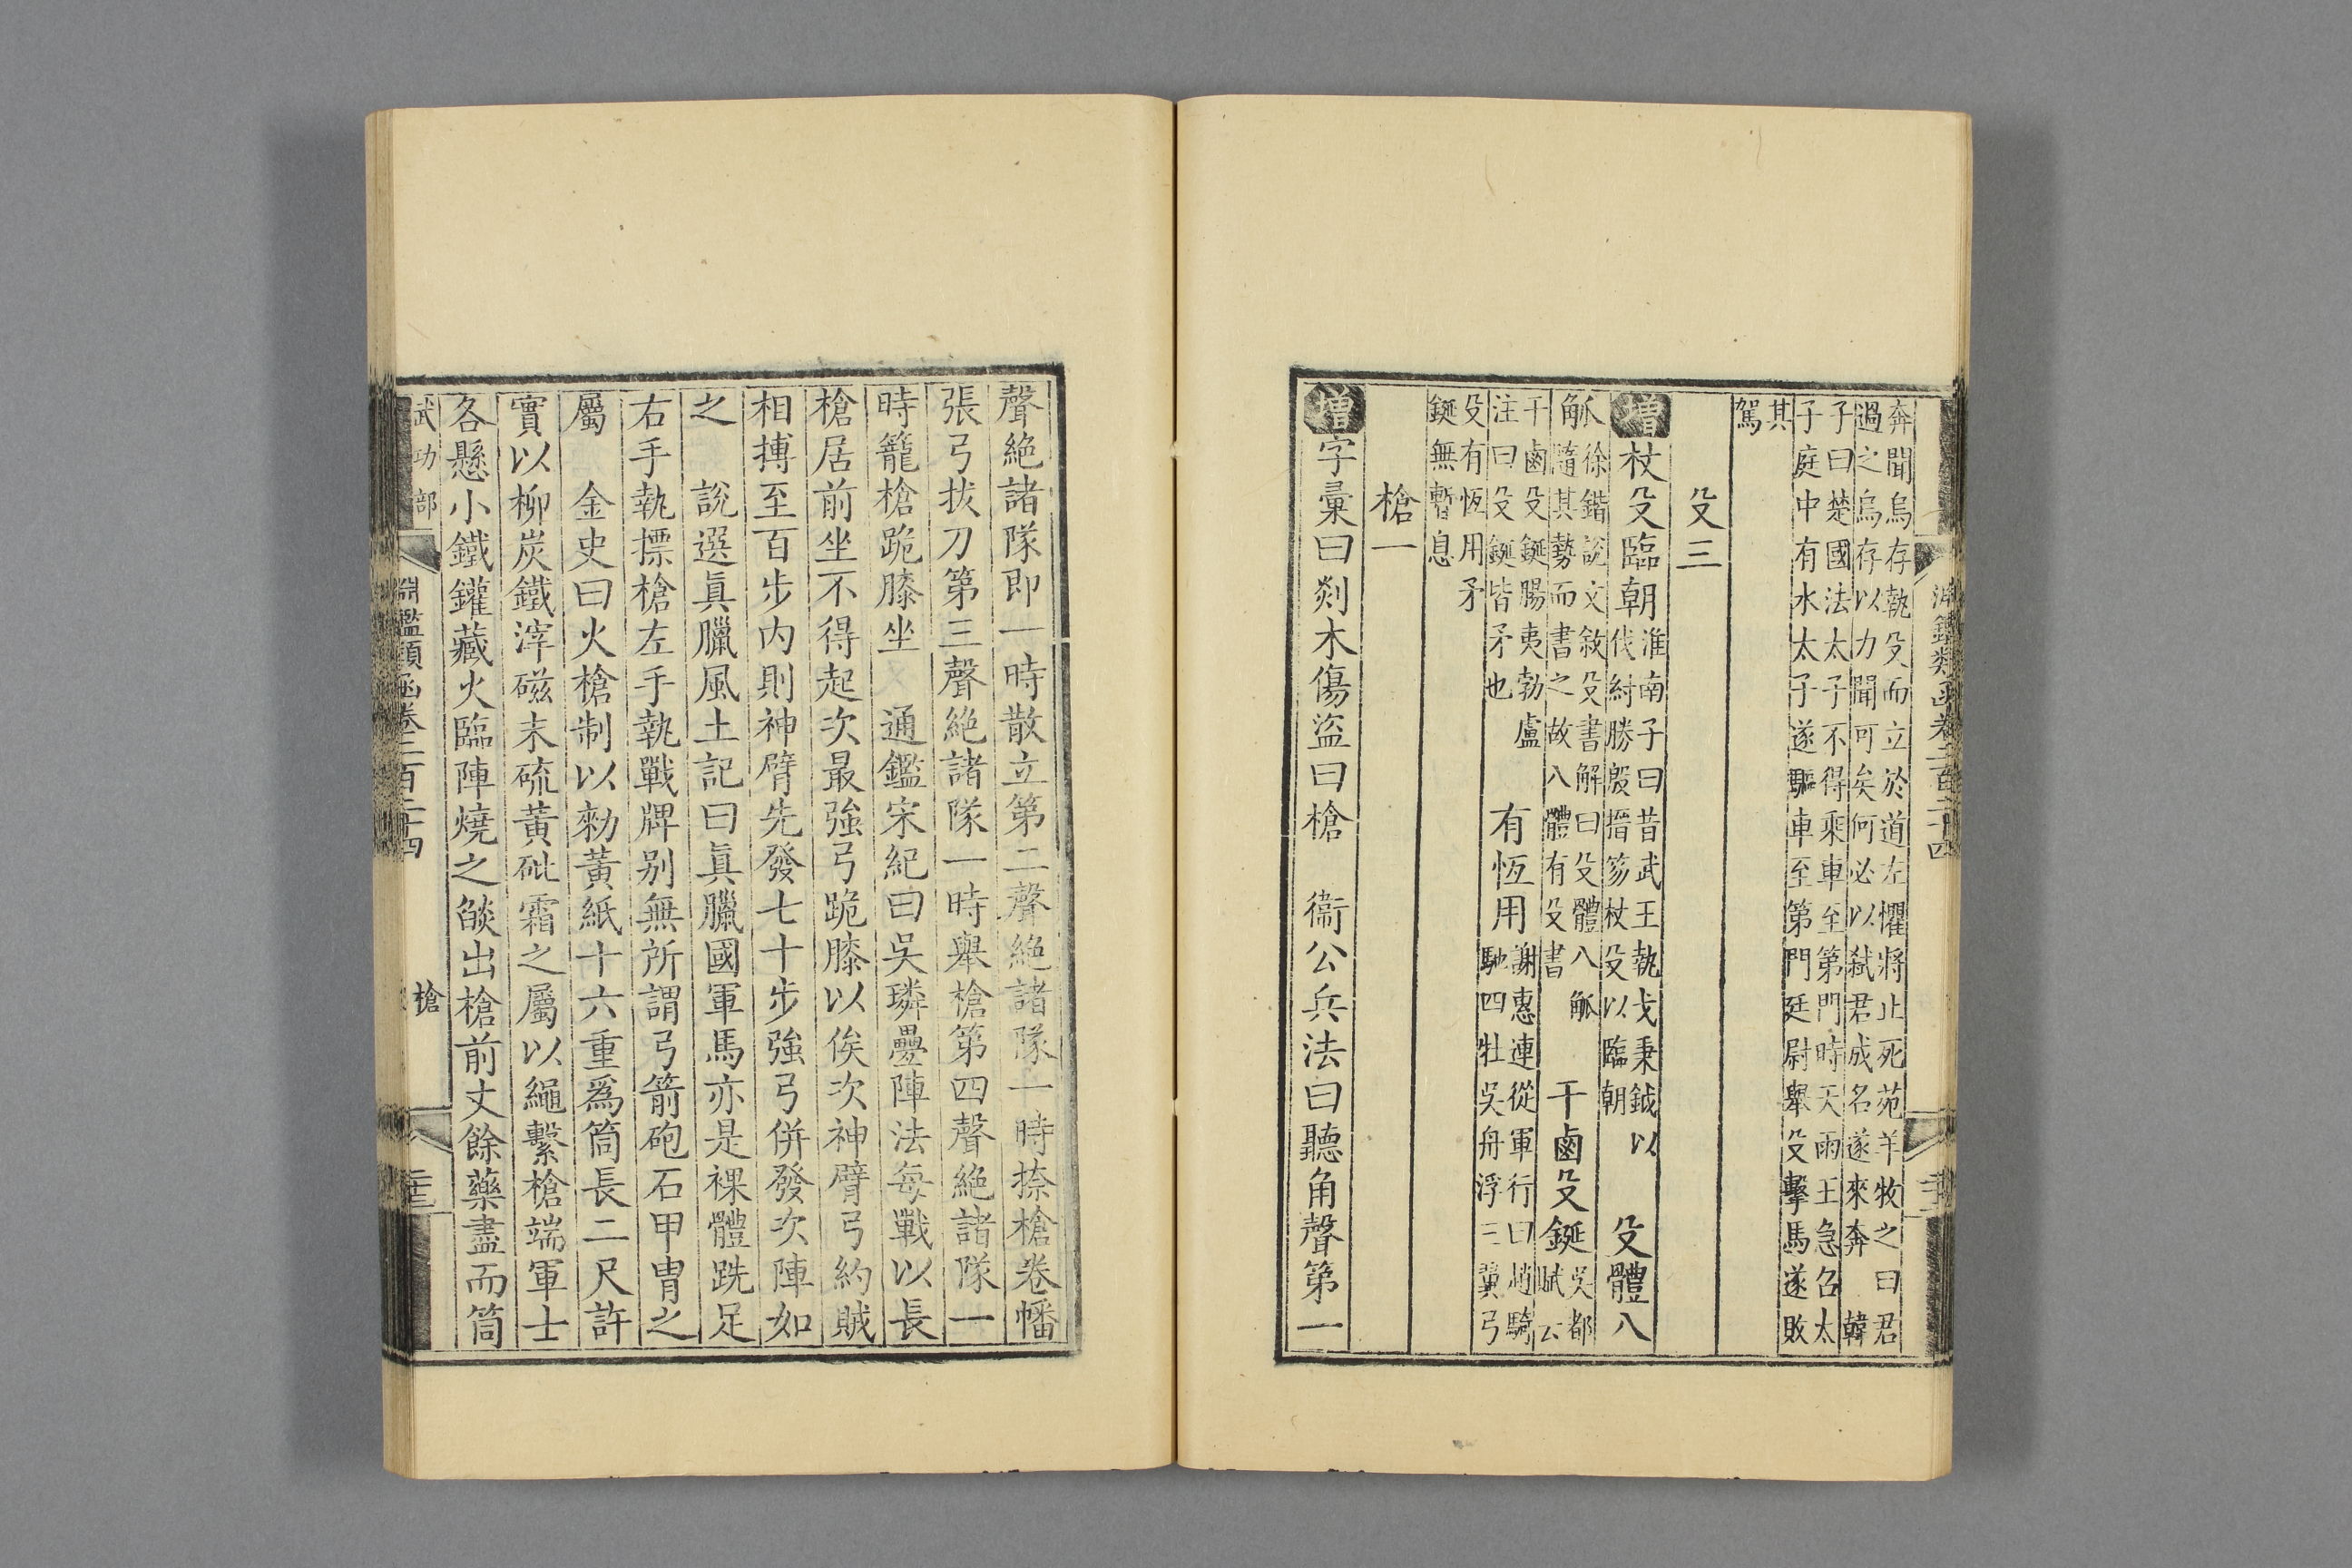 淵鑑類函卷二百二十四
奔聞烏存執殳而立於道左懼將止死苑羊牧之曰君
過之烏存以力聞可矣何必以弒君成名遂來奔 韓
子曰楚國法太子不得乘車至第門時天雨王急召太
子庭中有水太子遂驅車至第門廷尉舉殳擊馬遂敗
其
駕
殳三
增杖殳臨朝
淮南子曰昔武王執戈秉鉞以
伐紂勝殷搢笏杖殳以臨朝
殳體八
觚
徐鍇說文敘殳書解曰殳體八觚
隨其勢而書之故八體有殳書
干鹵殳鋋
吳都
賦云
干鹵殳鋋腸夷勃盧
注曰殳鋋皆矛也
有恆用
謝惠連從軍行曰趙騎
馳四牡吳舟浮三翼弓
殳有恆用矛
鋋無暫息
槍一
增字彙曰剡木傷盜曰槍 衞公兵法曰聽角聲第一
聲絕諸隊即一時散立第二聲絕諸隊一時捺槍卷幡
張弓拔刀第三聲絕諸隊一時舉槍第四聲絕諸隊一
時籠槍跪膝坐 通鑑宋紀曰吳璘疊陣法每戰以長
槍居前坐不得起次最強弓跪膝以俟次神臂弓約賊
相搏至百步內則神臂先發七十步強弓併發次陣如
之 說選眞臘風土記曰眞臘國軍馬亦是裸體跣足
右手執摽槍左手執戰牌别無所謂弓箭砲石甲冑之
屬 金史曰火槍制以勑黃紙十六重爲筒長二尺許
實以柳炭鐵滓磁末硫黃砒霜之屬以繩繫槍端軍士
各懸小鐵鑵藏火臨陣燒之燄出槍前丈餘藥盡而筒
武功部
淵鑑類函卷二百二十四
槍
二十三